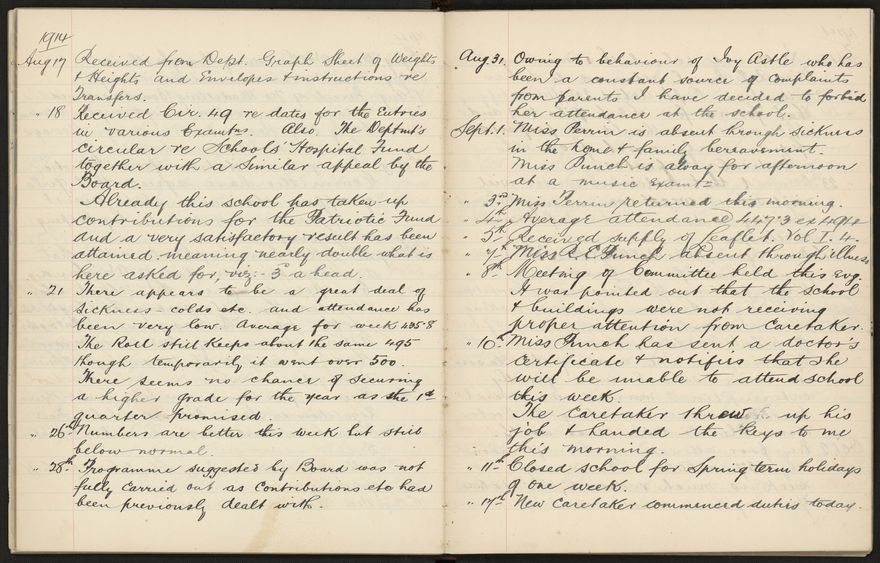 1914
Aug 17 Received from Dept. Graph Sheet of Weights
& Heights and Envelopes & instructions re
Transfers.
" 18 Received Cir. 49 re dates for the Entries
in various Examtns. Also The Deptmt's
circular re Schools' Hospital Fund
together with a similar appeal by the
Board.
Already this school has taken up
contributions for the Patriotic Fund
and a very satisfactory result has been
attained meaning nearly double what is
here asked for, viz:- 3d a head.
" 21 There appears to be a great deal of
sickness - colds etc. and attendance has
been very low. Average for week 405.8
The Roll still keeps about the same 495
though temporarily it went over 500.
There seems no chance of securing
a higher grade for the year as the 1st
quarter promised.
" 26th Numbers are better this week but still
below normal.
" 28th Programme suggested by Board was not
fully carried out as contributions etc had
been previously dealt with.
Aug 31. Owing to behaviour of Ivy Astle who has
been a constant source of complaints
from parents I have decided to forbid
her attendance at the school.
Sept. 1. Miss Perrin is absent through sickness
in the home & family bereavement.
Miss Punch is away for afternoon
at a music examtn
" 3rd Miss Perrin returned this morning.
" 4th Average attendance 447.3
" 5th Received supply of leaflet. Vol I. 4.
" 7th Miss Punch absent through illness
" 8th Meeting of Committee held this evg.
It was pointed out that the school
& buildings were not receiving
proper attention from caretaker.
" 10th Miss Punch has sent a doctor's
certificate & notifies that she
will be unable to attend school
this week.
The caretaker threw up his
job & handed the keys to me
this morning.
" 11th Closed school for Spring term holidays
of one week.
" 17th New caretaker commenced duties today.